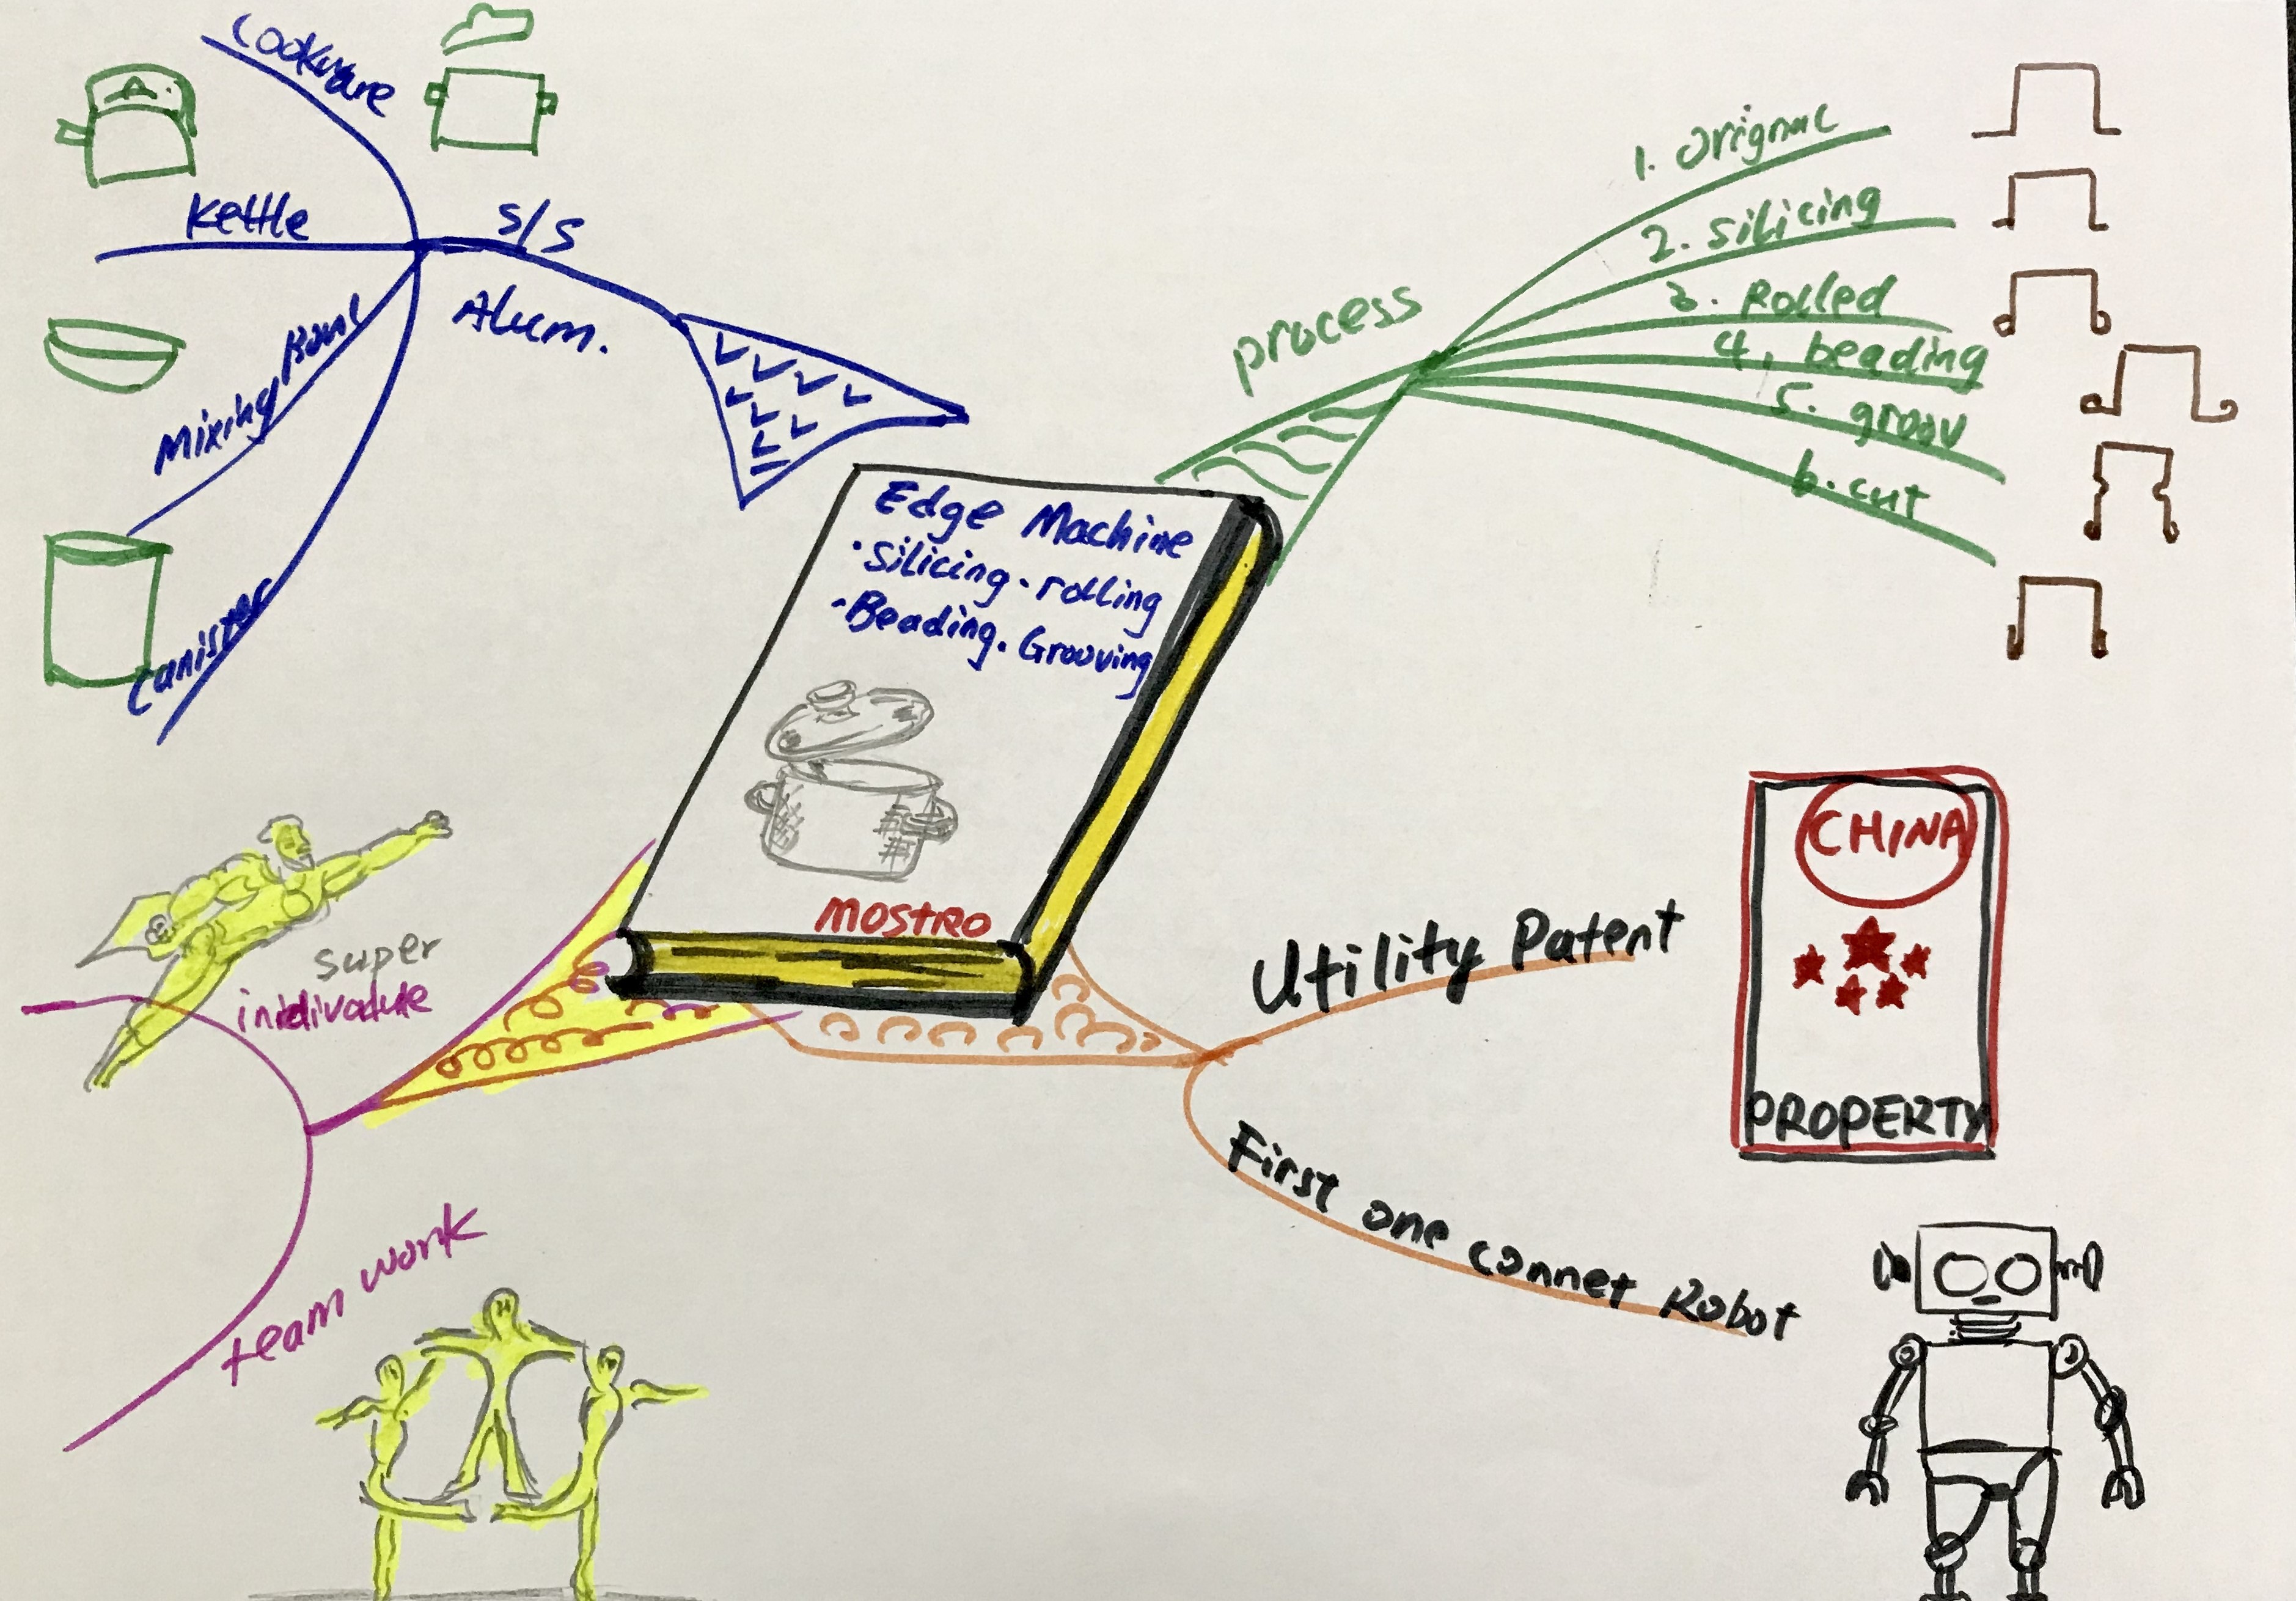 Cookware
Kettle
S/S
Alum.
Mixing Bowl
Canister
process
1. Orignal
2. Silicing
3. Rolled
4, beading
5. groov
6. cut
Edge Machine
·Silicing·rolling
·Beading.Grooving
MOSTRO
super
team work
Utility Patent
First one connet Robot
CHINA
PROPERTY